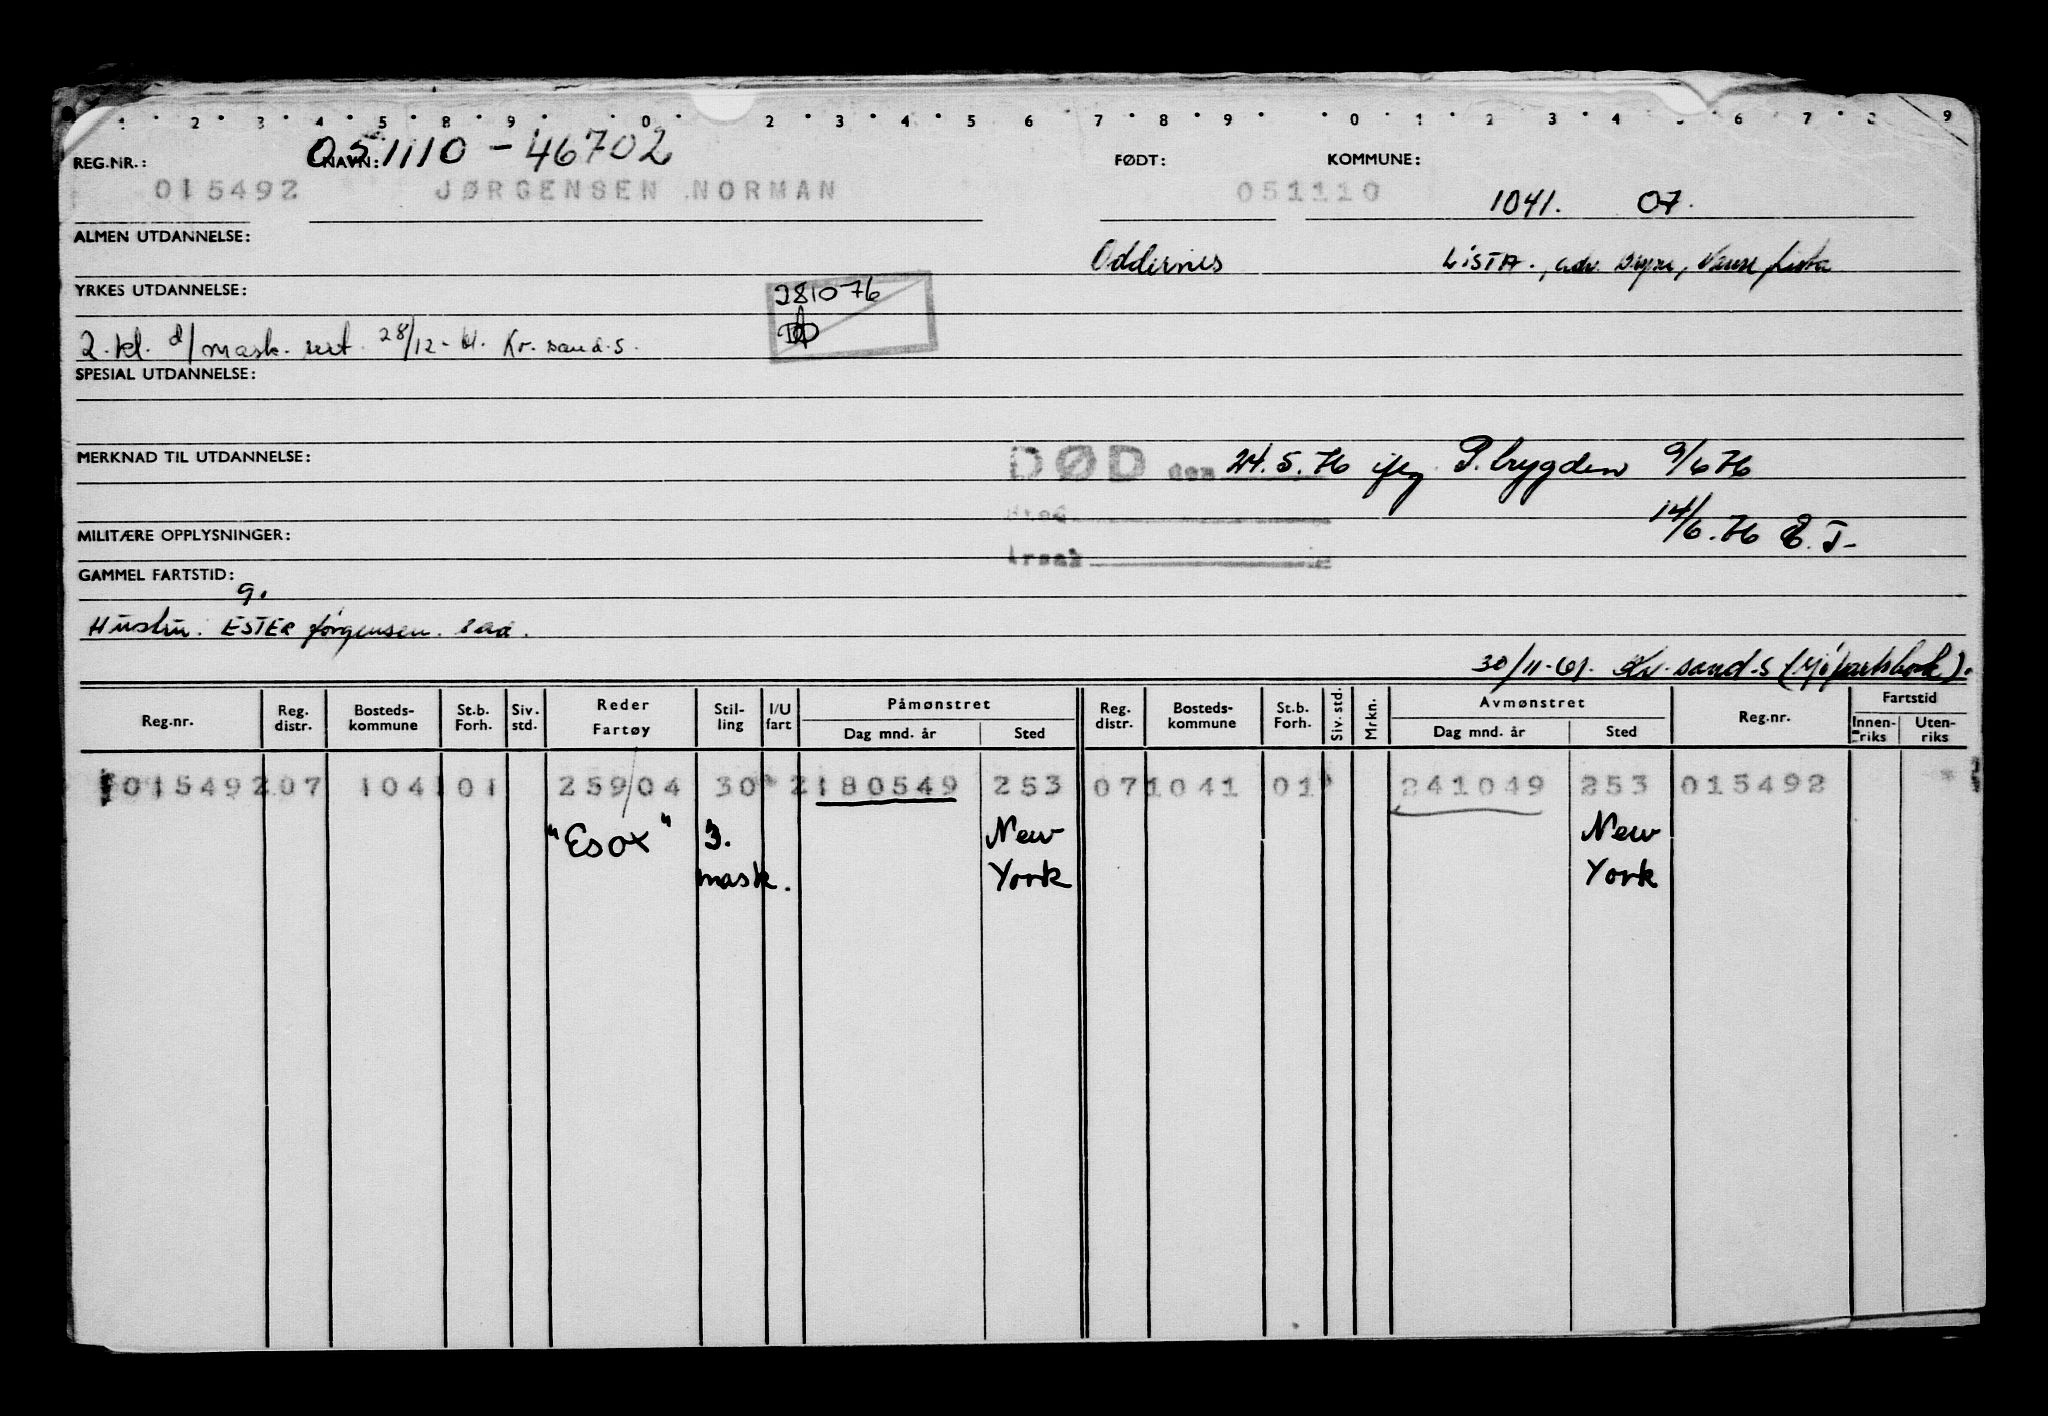 1 2 3 4 5 8 9 0 2 3 4 5 6 7 8 9 0 1 2 3 4 6 7 9
REG.NR.: NAVN: 051110 - 46702 FØDT: KOMMUNE:
015492 JØRGENSEN NORMAN 051110 1041. 07.
ALMEN UTDANNELSE:
Oddernes LISTA., adr. Vanse, Lista
YRKES UTDANNELSE: 281076
2. kl. d/ mask. sert. 28/12-61. Kr.sand.S. DØD
SPESIAL UTDANNELSE:
MERKNAD TIL UTDANNELSE: DØD den 24.5.76 iflg. P. trygden 9/6 76
Sted
14/6.76 E.T.
MILITÆRE OPPLYSNINGER:
Årsak
GAMMEL FARTSTID:
9.
Hustru. ESTER Jørgensen. s ad.
30/11-61. Kr.sand.S (Sjøfartsbok).
Reg.nr. Reg. distr. Bosteds-kommune St.b. Forh. Siv. std. Reder Fartøy Stil-ling I/U fart Påmønstret Dag mnd. år Sted Reg. distr. Bosteds-kommune St.b. Forh. Siv. std. Mrkn. Avmønstret Dag mnd. år Sted Reg.nr. Fartstid Innen-riks Uten-riks
015492 07 1041 01 25904 30 2 180549 253 07 1041 01 241049 253 015492
"Esox" 3. New New
mask. York York